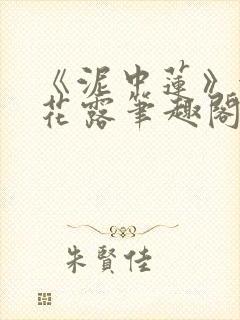 《泥中蓮》
花露筆趣閣
朱賢佳